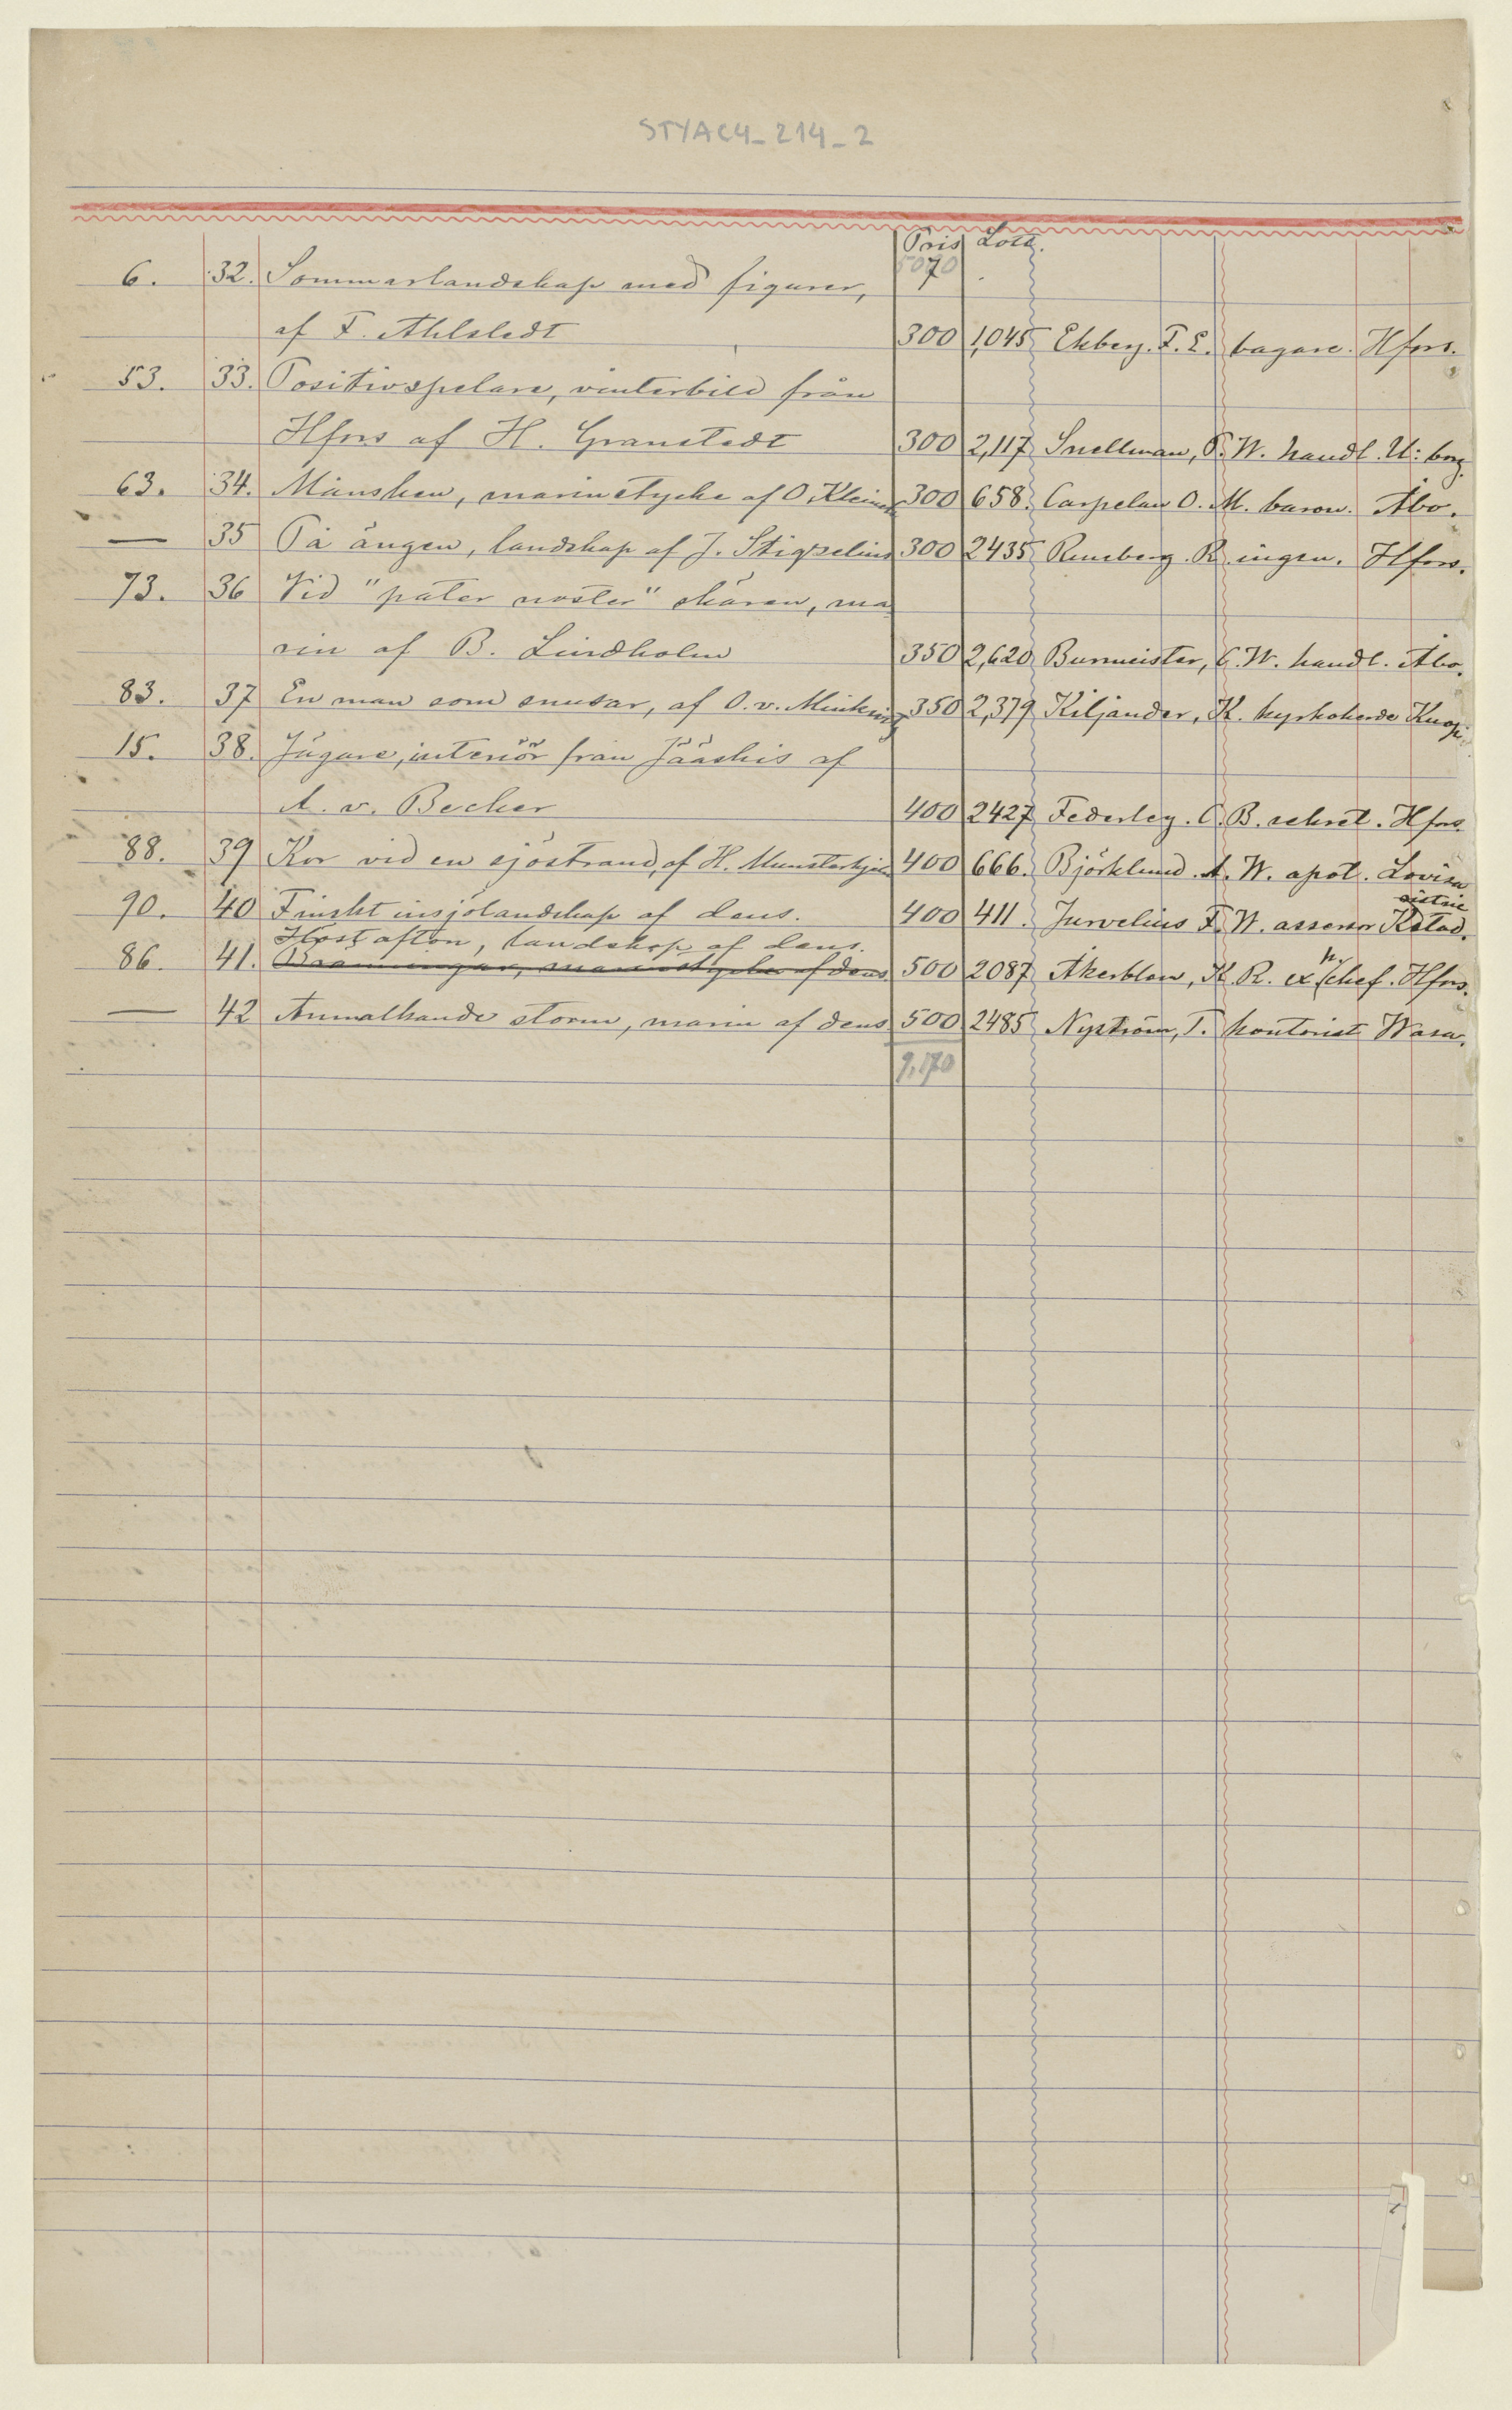 STYAC4_214_2
Pris Lott.
5070
6. 32. Sommarlandskap med figurer,
af F. Ahlstedt 300 1,045 Ekberg. F. E. bagare. Hfors.
53. 33. Positivspelare, vinterbild från
Hfors af H. Granstedt 300 2,117 Snellman, P. W. handl. U:borg.
63. 34. Månsken, marinstycke af O. Kleineh 300 658. Carpelan O. M. baron. Åbo.
— 35 På ängen, landskap af J. Stigzelius 300 2435 Runeberg. R. ingen. Hfors.
73. 36 Vid "pater noster" skären, ma
rin af B. Lindholm 350 2,620 Burmeister, C. W. handl. Åbo.
83. 37 En man som snusar, af O. v. 350 2,379 Kiljander, K. kyrkoherde Kuopi.
15. 38. Jägare, interiör från Jääskis af
A. v. Becker 400 2427 Federley. C. B. sekret. Hfors.
88. 39 Kor vid en sjöstrand, af H. Munsterhjelm 400 666. Björklund. A. W. apot. Lovisa
90. 40 Finskt insjölandskap af dens. 400 411. Jurvelius F. W. assessor Kstad.
Höstafton, landskap af dens.
86. 41. Bränningar, marinstycke af dens 500 2087 Åkerblom, K. R. ex chef. Hfors.
— 42 Annalkande storm, marin af dens 500 2485 Nyström, T. kontorist Wasa.
9,170